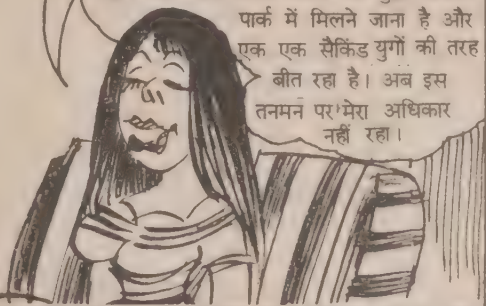 पार्क में मिलने जाना है और
एक एक सैकिंड युगों की तरह
बीत रहा है। अब इस
तनमन पर मेरा अधिकार
नहीं रहा।